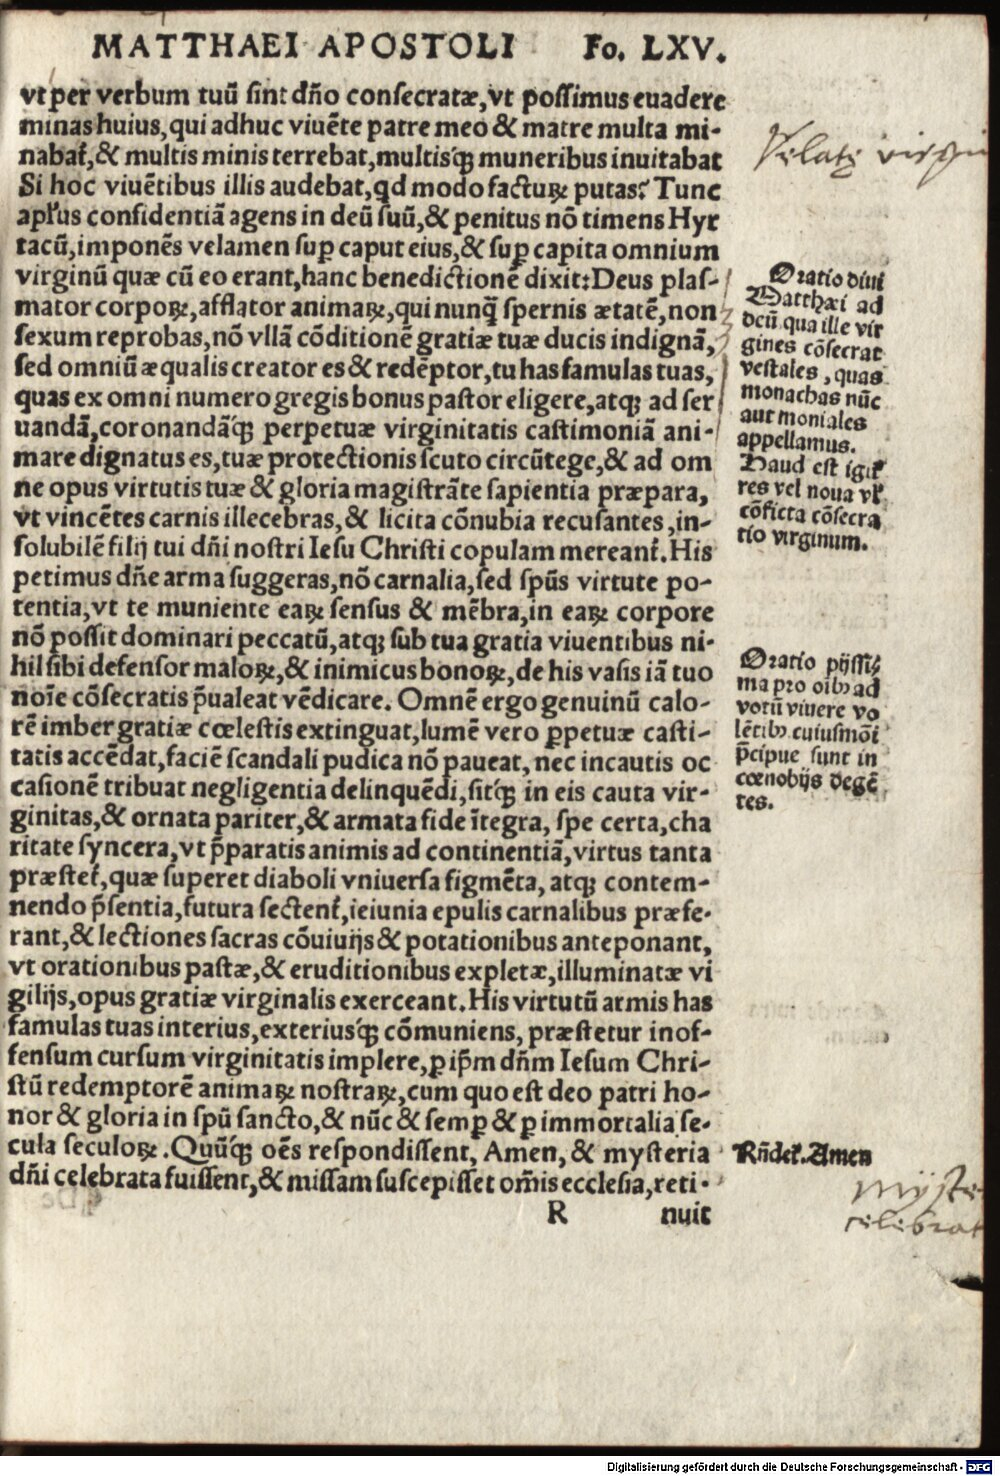 MATTHAEI APOSTOLI Fo. LXV.
vt per verbum tuũ sint dño consecratæ, vt possimus euadere
minas huius, qui adhuc viuẽte patre meo & matre multa mi-
nabat̃, & multis minis terrebat, multisq́ꝫ muneribus inuitabat
Si hoc viuẽtibus illis audebat, qd modo facturꝝ putas? Tunc
apľus confidentiã agens in deũ suũ, & penitus nõ timens Hyr
tacũ, imponẽs velamen suꝑ caput eius, & suꝑ capita omnium
virginũ quæ cũ eo erant, hanc benedictionẽ dixit: Deus plas-
mator corpoꝝ, afflator animaꝝ, qui nunq̃ spernis ætatẽ, non
sexum reprobas, nõ vllã cõditionẽ gratiæ tuæ ducis indignã,
sed omniũ æqualis creator es & redẽptor, tu has famulas tuas,
quas ex omni numero gregis bonus pastor eligere, atqꝫ ad ser
uandã, coronandãq́ꝫ perpetuæ virginitatis castimoniã ani-
mare dignatus es, tuæ protectionis scuto circũtege, & ad om
ne opus virtutis tuæ & gloria magistrãte sapientia præpara,
vt vincẽtes carnis illecebras, & licita cõnubia recusantes, in-
solubilẽ filij tui dñi nostri Iesu Christi copulam mereant̃. His
petimus dñe arma suggeras, nõ carnalia, sed spũs virtute po-
tentia, vt te muniente eaꝝ sensus & mẽbra, in eaꝝ corpore
nõ possit dominari peccatũ, atqꝫ sub tua gratia viuentibus ni-
hil sibi defensor maloꝝ, & inimicus bonoꝝ, de his vasis iã tuo
noĩe cõsecratis p̃ualeat vẽdicare. Omnẽ ergo genuinũ calo-
rẽ imber gratiæ cœlestis extinguat, lumẽ vero ꝑpetuæ casti-
tatis accẽdat, faciẽ scandali pudica nõ paueat, nec incautis oc
casionẽ tribuat negligentia delinquẽdi, sitq́ꝫ in eis cauta vir-
ginitas, & ornata pariter, & armata fide ĩtegra, spe certa, cha
ritate syncera, vt p̃paratis animis ad continentiã, virtus tanta
præstet̃, quæ superet diaboli vniuersa figmẽta, atqꝫ contem-
nendo p̃sentia, futura sectent̃, ieiunia epulis carnalibus præfe-
rant, & lectiones sacras cõuiuijs & potationibus anteponant,
vt orationibus pastæ, & eruditionibus expletæ, illuminatæ vi
gilijs, opus gratiæ virginalis exerceant. His virtutũ armis has
famulas tuas interius, exteriusq́ꝫ cõmuniens, præstetur inof-
fensum cursum virginitatis implere, ꝑ ip̃m dñm Iesum Chri-
stũ redemptorẽ animaꝝ nostraꝝ, cum quo est deo patri ho-
nor & gloria in spũ sancto, & nũc & semꝑ & ꝑ immortalia se-
cula seculoꝝ. Quũq́ꝫ oẽs respondissent, Amen, & mysteria
dñi celebrata fuissent, & missam suscepisset om̃is ecclesia, reti-
R nuit
Velatę virgin
Oratio diui
Matthæi ad
deũ, qua ille vir
gines cõsecrat
vestales, quas
monachas nũc
aut moniales
appellamus.
Haud est igit̃
res vel noua vľ
cõficta cõsecra
tio virginum.
Oratio pijssi
ma pro oibꝫ ad
votũ viuere vo
lẽtibꝫ cuiusmõi
p̃cipue sunt in
cœnobijs degẽ
tes.
Rñdet̃. Amen
myste
celebrat
Digitalisierung gefördert durch die Deutsche Forschungsgemeinschaft - DFG